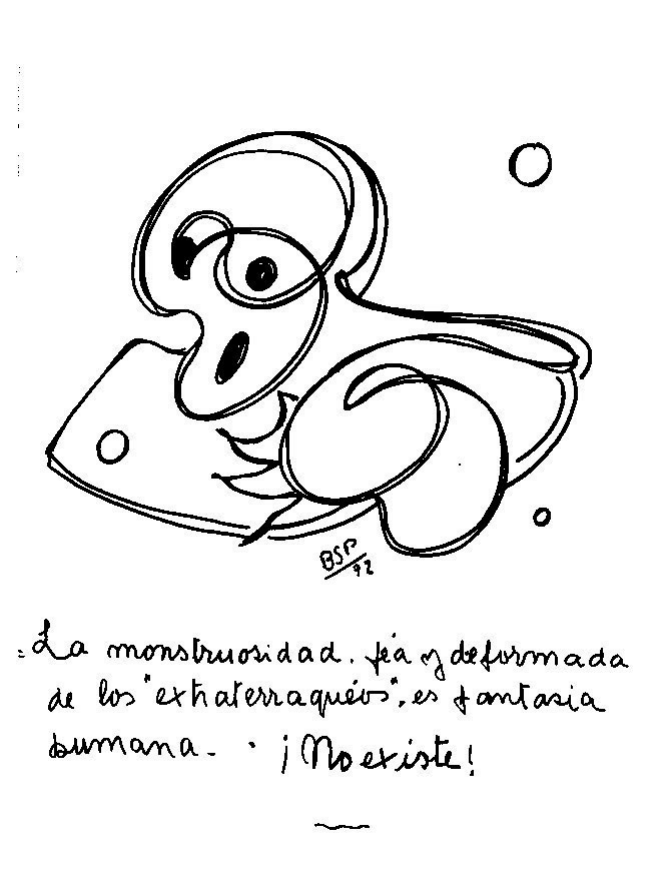 BSP
92
La monstruosidad. féa y deformada
de los "extraterraqueos", es fantasia
humana. - ¡No existe!